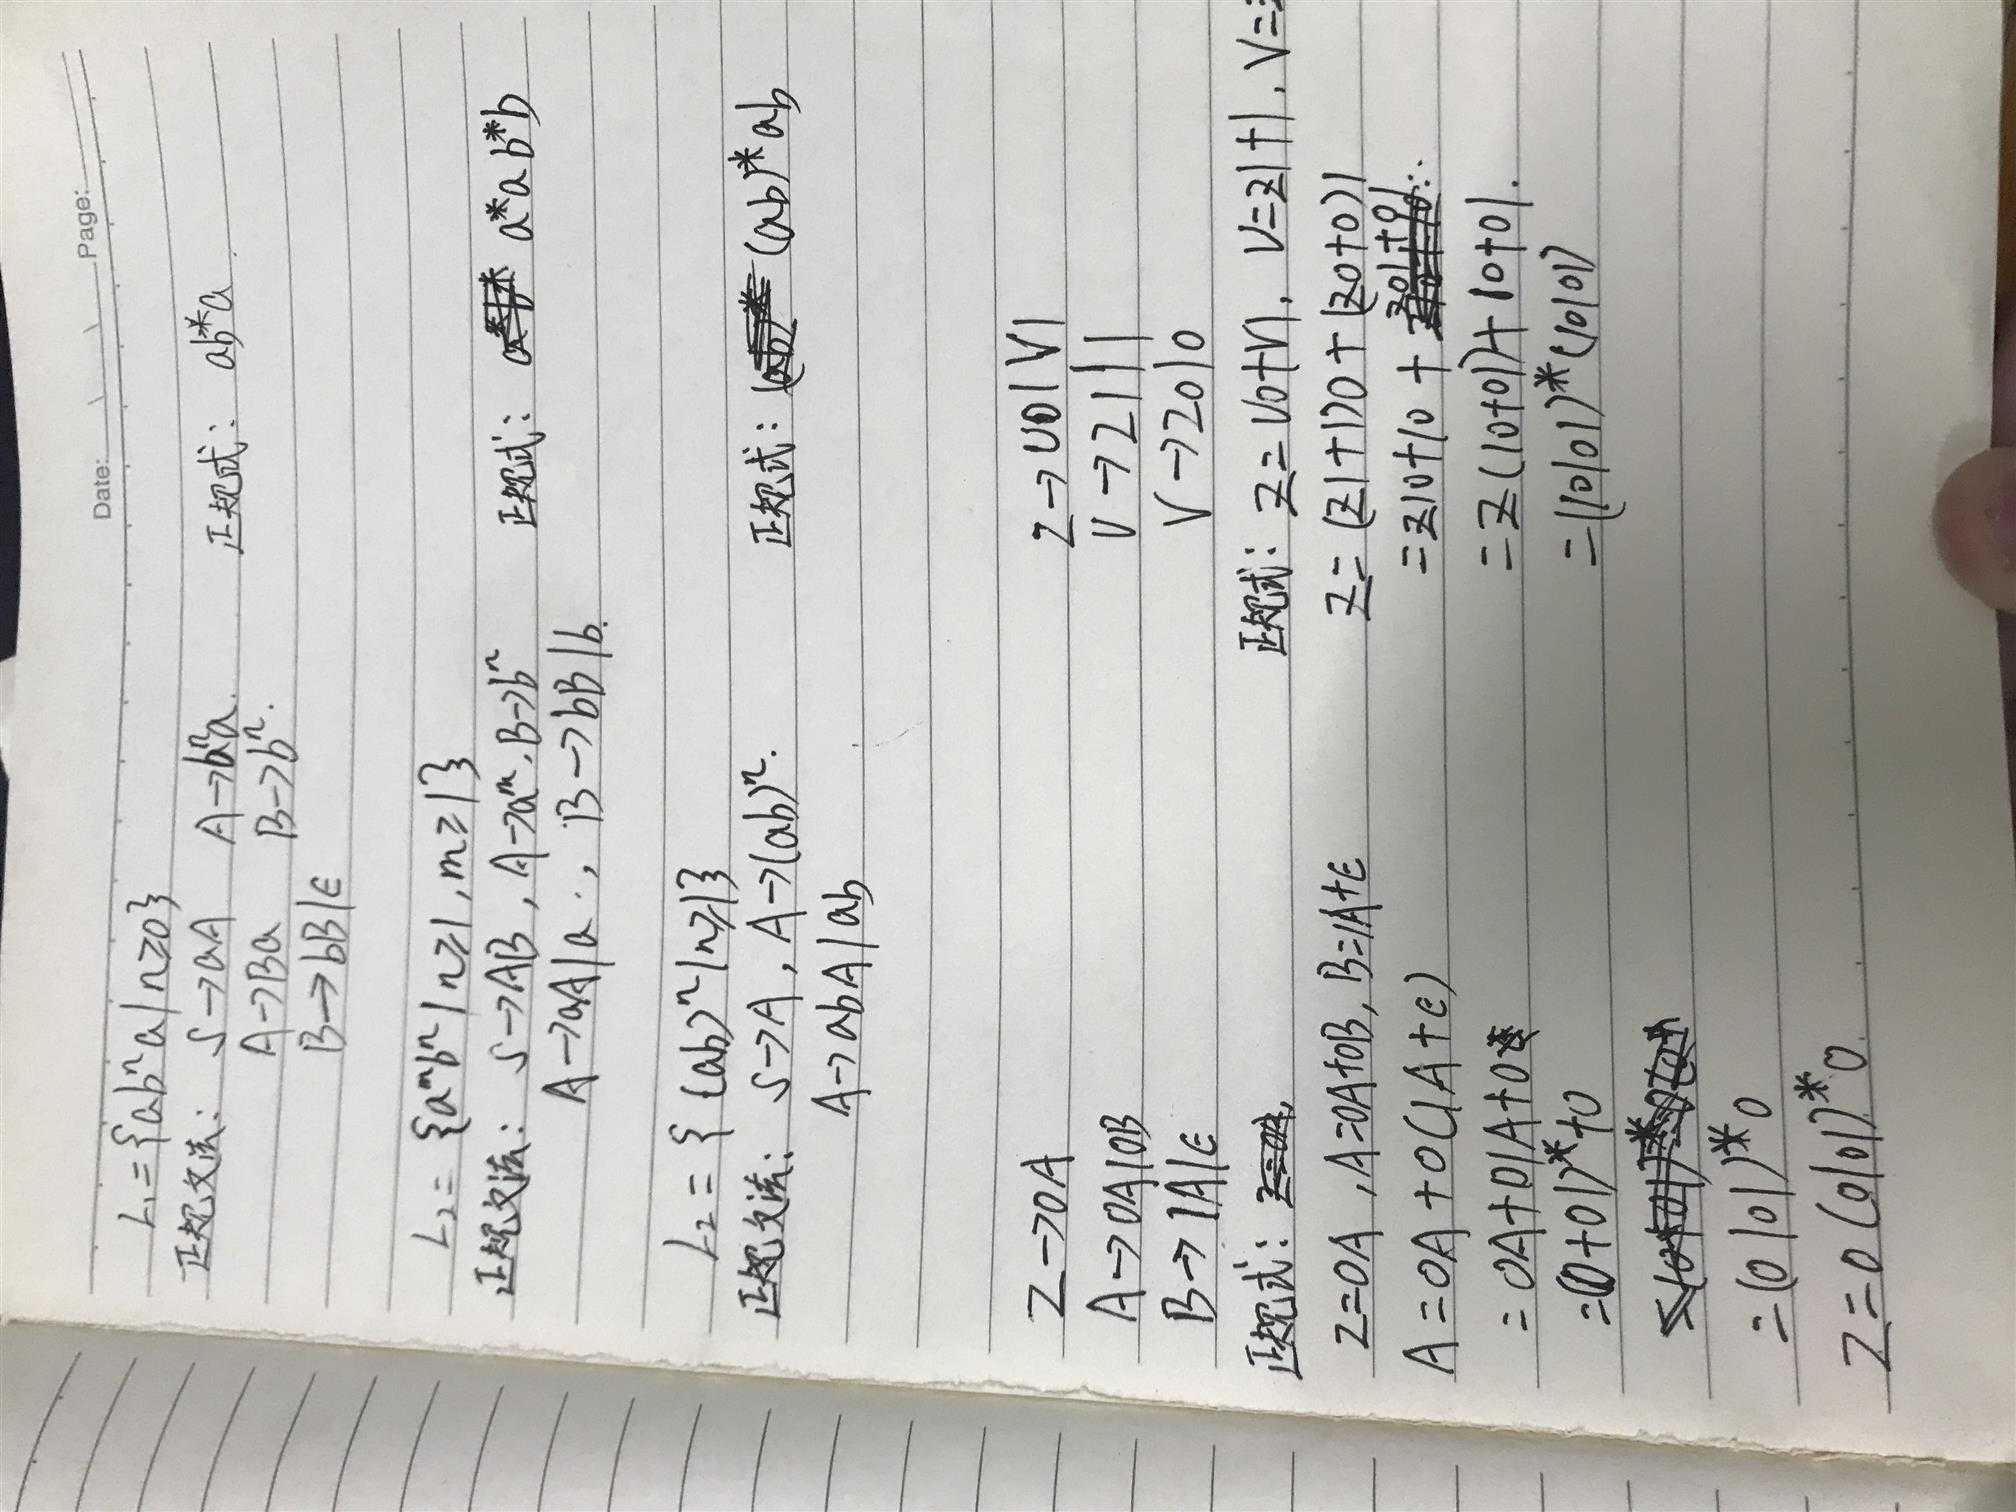 Date: Page:
L₁ = {abⁿa | n≥0}
正规文法: S→aA A→bⁿa. 正规式: ab*a.
A→Ba B→bⁿ.
B→bB|ε
L₂ = {aᵐbⁿ | n≥1, m≥1}
正规文法: S→AB, A→aᵐ, B→bⁿ 正规式: a*ab*b
A→aA|a., B→bB|b.
L₂ = { (ab)ⁿ | n≥1}
正规文法: S→A, A→(ab)ⁿ. 正规式: (ab)*ab
A→abA|ab
Z→0A
A→0A|0B
B→1A|ε
正规式:
Z=0A, A=0A+0B, B=1A+ε
A=0A+0(1A+ε)
=0A+01A+0
=(0+01)*+0
=(0|01)*0
Z=0(0|01)*0.
Z→U0|V1
V→Z1|1
V→Z0|0
正规式: Z=U0+V1, V=Z1+1, V=
Z=(Z1+1)0+(Z0+0)1
=Z10+10+Z01+01
=Z(10+01)+10+01.
=(10|01)*(10|01)